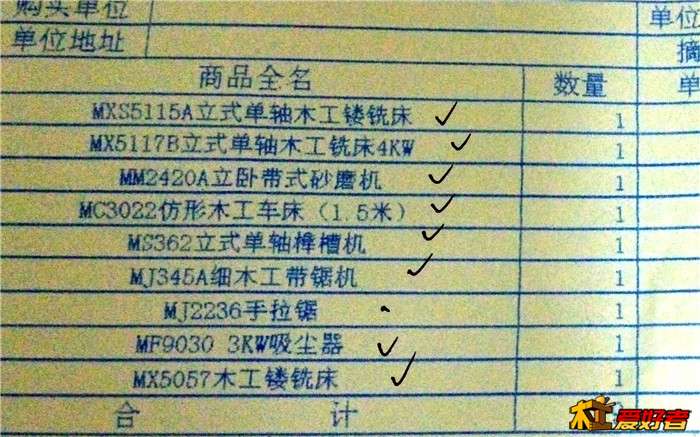 购买单位 单位
单位地址 摘
商品全名 数量 单
MXS5115A立式单轴木工镂铣床 1
MX5117B立式单轴木工铣床4KW 1
MM2420A立卧带式砂磨机 1
MC3022仿形木工车床（1.5米） 1
MS362立式单轴榫槽机 1
MJ345A细木工带锯机 1
MJ2236手拉锯 1
MF9030 3KW吸尘器 1
MX5057木工镂铣床 1
合 计
木工爱好者